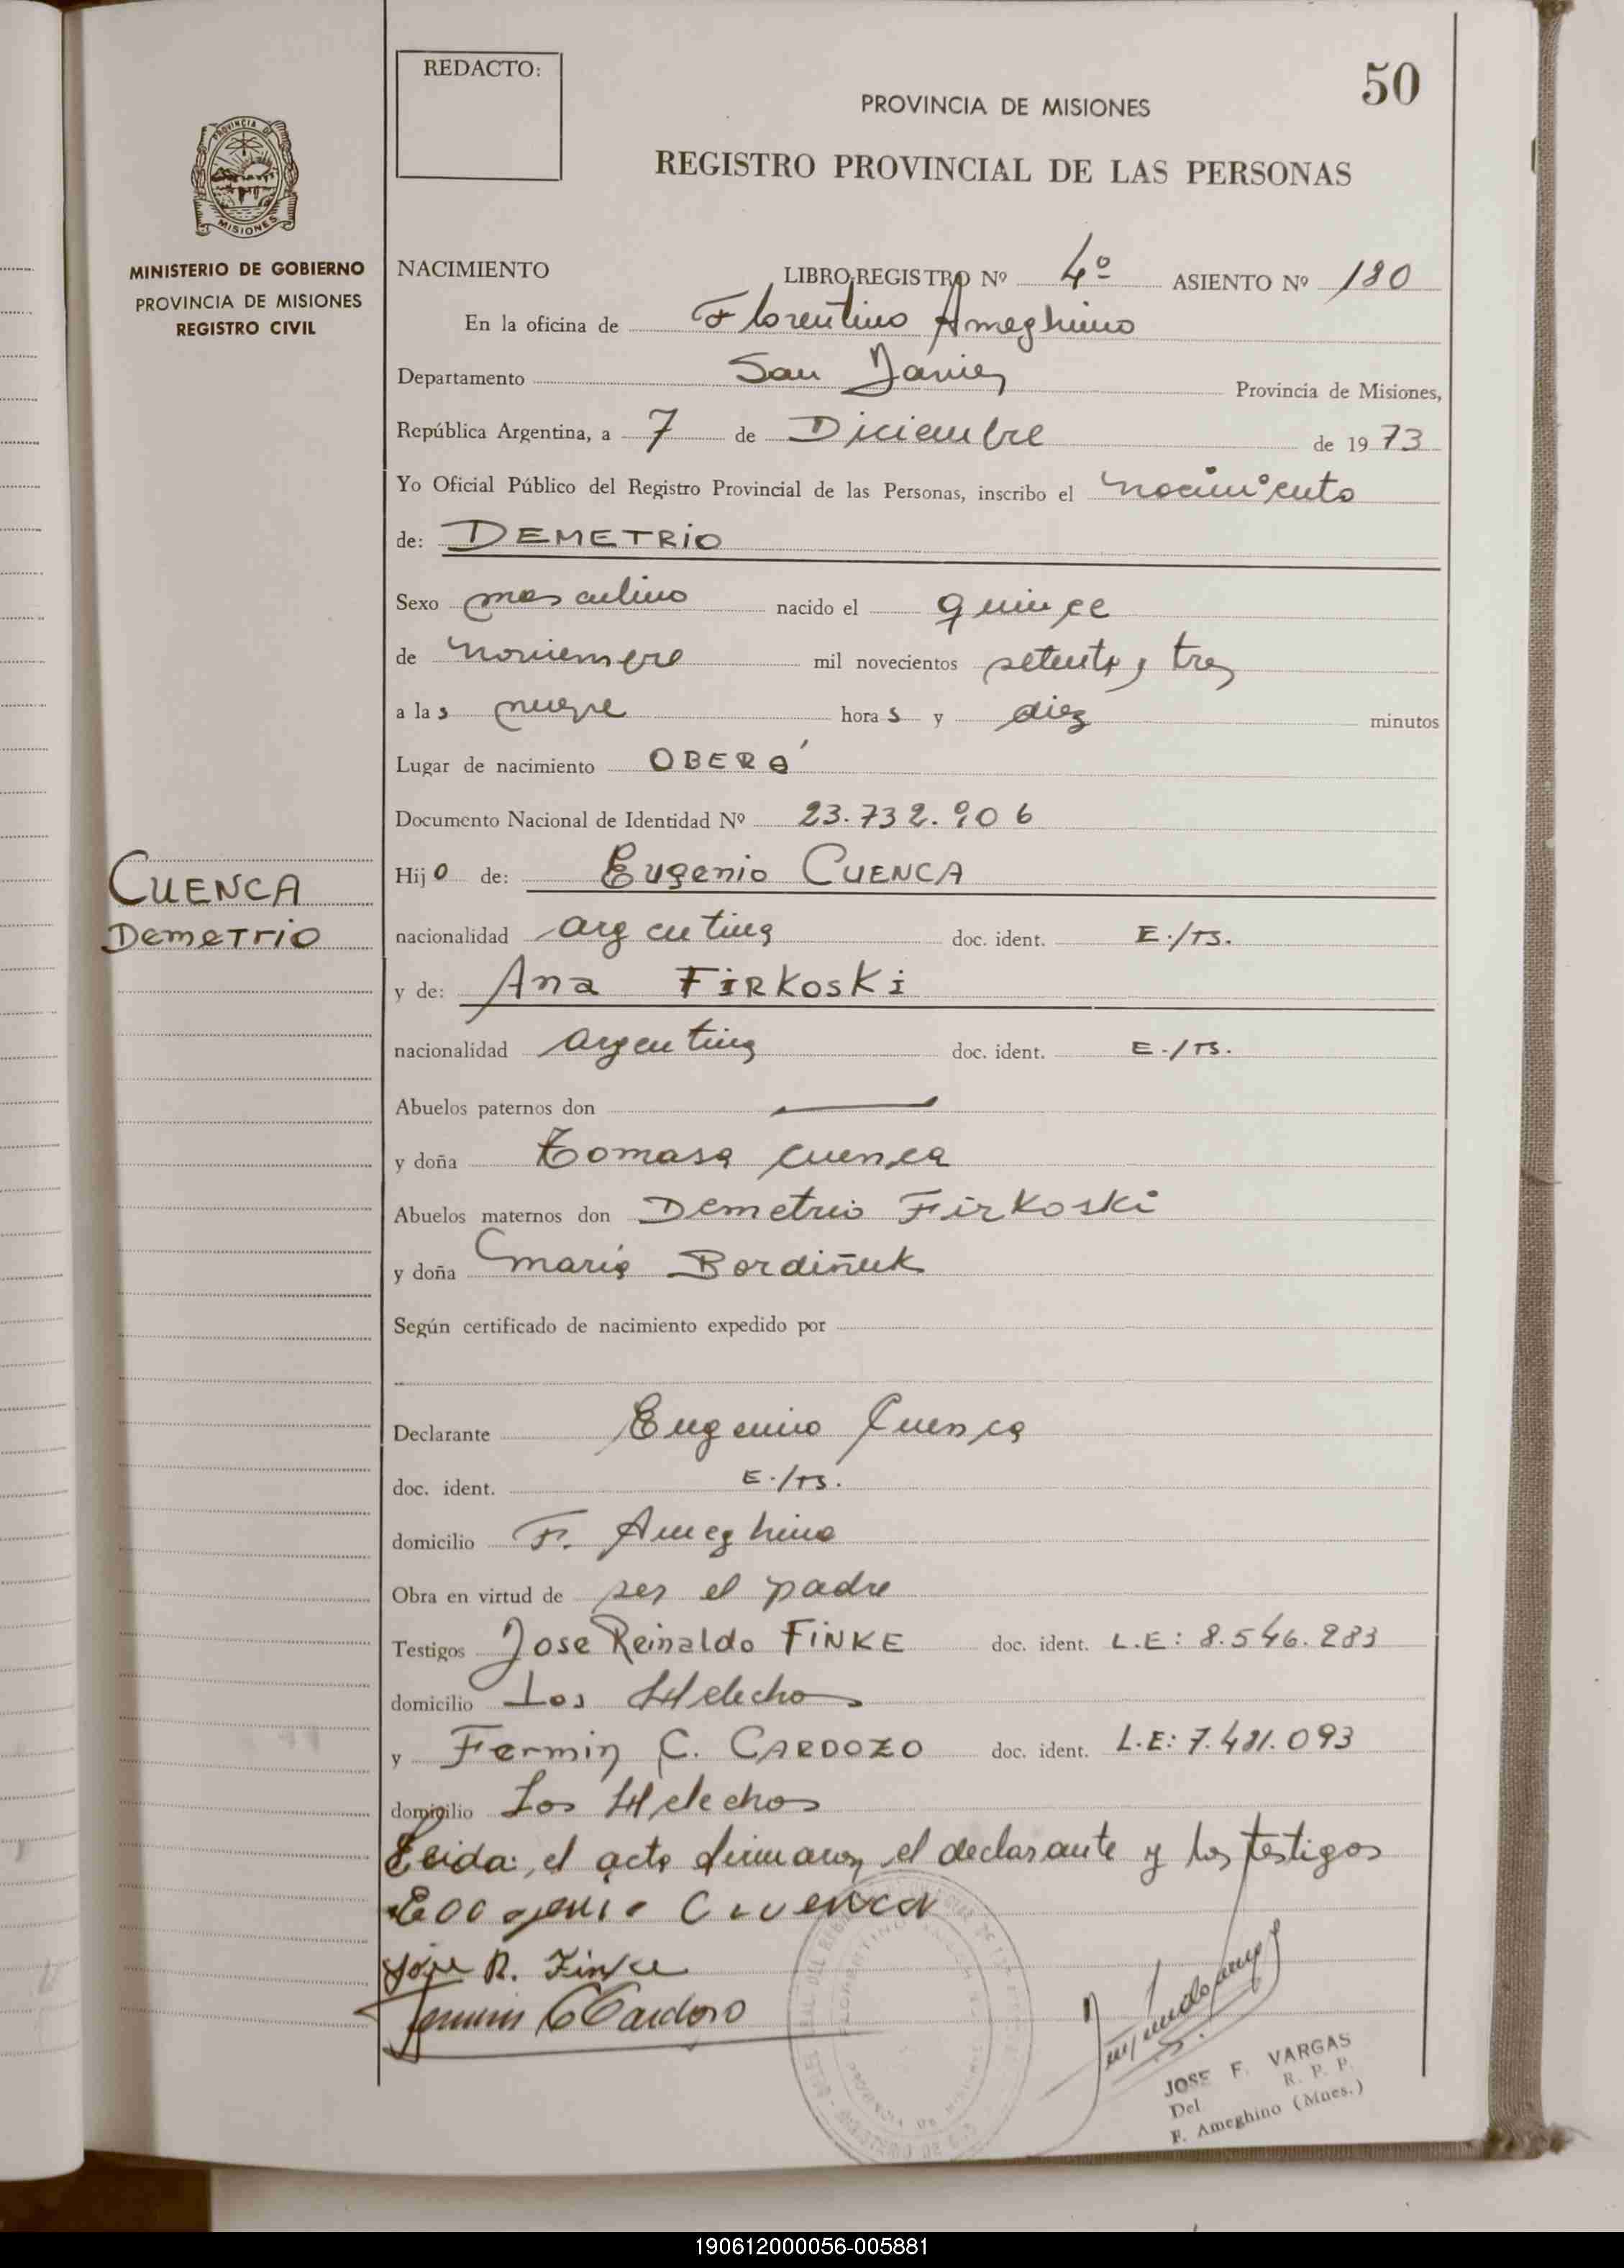 REDACTO:
50
PROVINCIA DE MISIONES
REGISTRO PROVINCIAL DE LAS PERSONAS
PROVINCIA DE
MISIONES
MINISTERIO DE GOBIERNO
PROVINCIA DE MISIONES
REGISTRO CIVIL
NACIMIENTO LIBRO REGISTRO Nº 4º ASIENTO Nº 180
En la oficina de Florentino Ameghino
Departamento San Javier Provincia de Misiones,
República Argentina, a 7 de Diciembre de 1973
Yo Oficial Público del Registro Provincial de las Personas, inscribo el nacimiento
de: DEMETRIO
Sexo masculino nacido el quince
de noviembre mil novecientos setenta y tres
a las nueve horas y diez minutos
Lugar de nacimiento OBERá
Documento Nacional de Identidad Nº 23.732.906
CUENCA
Demetrio
Hijo de: Eugenio CUENCA
nacionalidad argentina doc. ident. E./TS.
y de: Ana FIRKOSKi
nacionalidad argentina doc. ident. E./TS.
Abuelos paternos don
y doña Tomasa Cuenca
Abuelos maternos don Demetrio Firkoski
y doña María Bordiñuk
Según certificado de nacimiento expedido por
Declarante Eugenio Cuenca
doc. ident. E./TS.
domicilio F. Ameghino
Obra en virtud de ser el padre
Testigos Jose Reinaldo FINKE doc. ident. L.E: 8.546.283
domicilio Los Helechos
y Fermin C. CARDOZO doc. ident. L.E: 7.481.093
domicilio Los Helechos
Leida el acta firman el declarante y los testigos
Cuenca
Jose R. Finke
Fermin C Cardozo
JOSE F. VARGAS
Del R. P. P.
F. Ameghino (Mnes.)
190612000056-005881